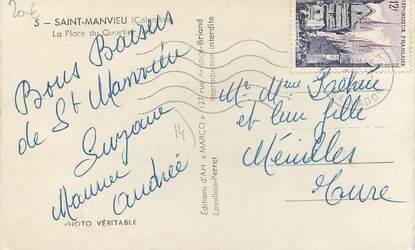 20€
5 - SAINT-MANVIEU (Calvados)
La Place du Quartier
Bons Baisers
de St Manvieu
Suzanne
Maurice
Andrée
14
PHOTO VÉRITABLE
Éditions d'Art « MARCO » 127 rue Aristide-Briand
Levallois-Perret
Reproduction interdite
12F
Mr Mme
et leur fille
Ménilles
Eure